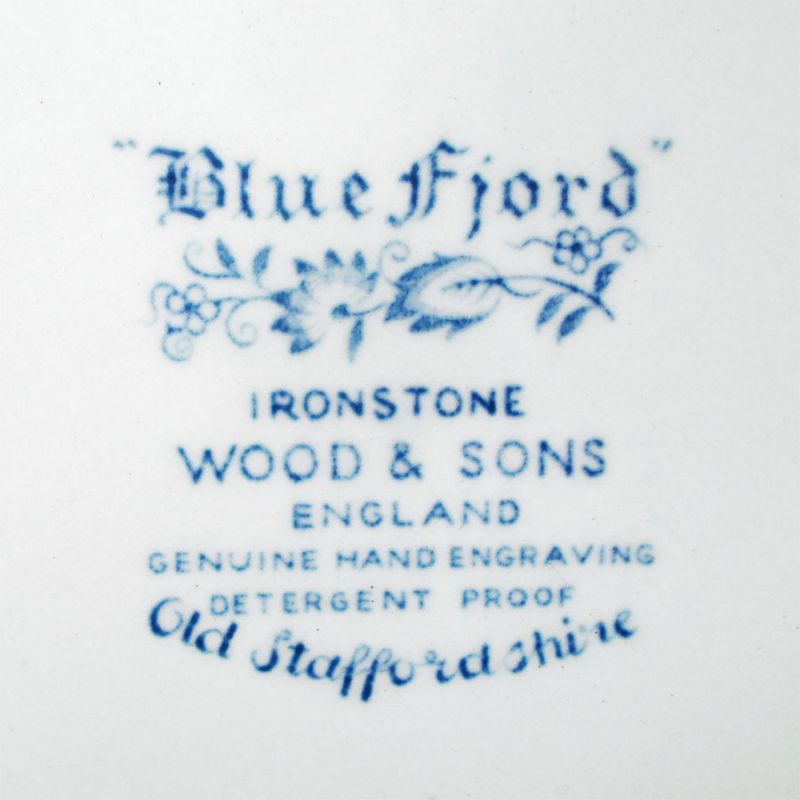 "Blue Fjord"
IRONSTONE
WOOD & SONS
ENGLAND
GENUINE HAND ENGRAVING
DETERGENT PROOF
Old Staffordshire